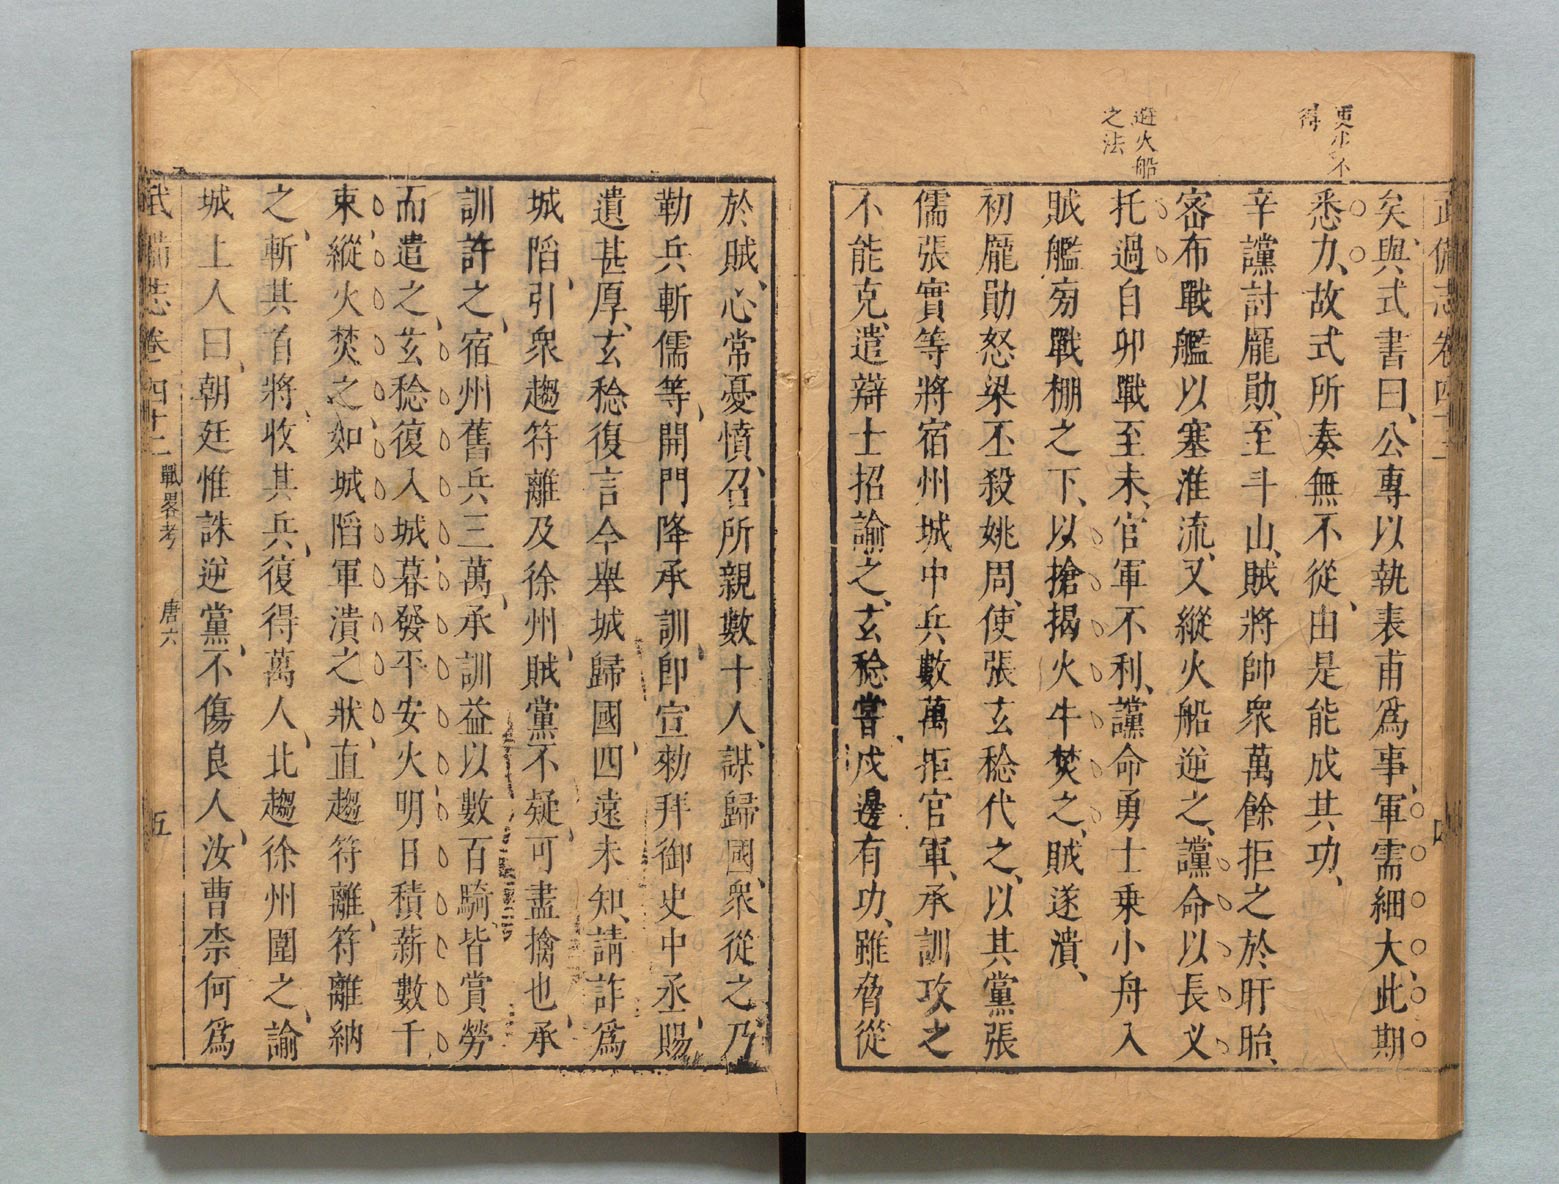 武備志卷四十二
四
更少不
得
避火船
之法
矣、與式書曰、公專以執表甫爲事、軍需細大、此期
悉力、故式所奏無不從、由是能成其功、
辛讜討龐勛、至斗山、賊將帥衆萬餘拒之於盱眙、
密布戰艦以塞淮流、又縱火船逆之、讜命以長义
托過自卯戰至未、官軍不利、讜命勇士乗小舟入
賊艦㫄戰棚之下、以搶揭火牛焚之、賊遂潰、
初龐勛怒梁丕殺姚周、使張玄稔代之、以其黨張
儒張實等將宿州城中兵數萬拒官軍、承訓攻之
不能克、遣辯士招諭之、玄稔嘗戍邊有功、雖脅從
於賊、心常憂憤、召所親數十人、謀歸國、衆從之乃
勒兵斬儒等、開門降承訓、卽宣勑拜御史中丞、賜
遺甚厚、玄稔復言今舉城歸國、四遠未知、請詐爲
城䧟、引衆趨符離及徐州、賊黨不疑、可盡擒也、承
訓許之、宿州舊兵三萬、承訓益以數百騎、皆賞勞
而遣之、玄稔復入城、暮發平安火、明日積薪數千
束、縱火焚之、如城䧟軍潰之狀、直趨符離、符離納
之、斬其首將、收其兵、復得萬人、北趨徐州圍之、諭
城上人曰、朝廷惟誅逆黨、不傷良人、汝曹柰何爲
武備志卷四十二 戰畧考 唐六
五